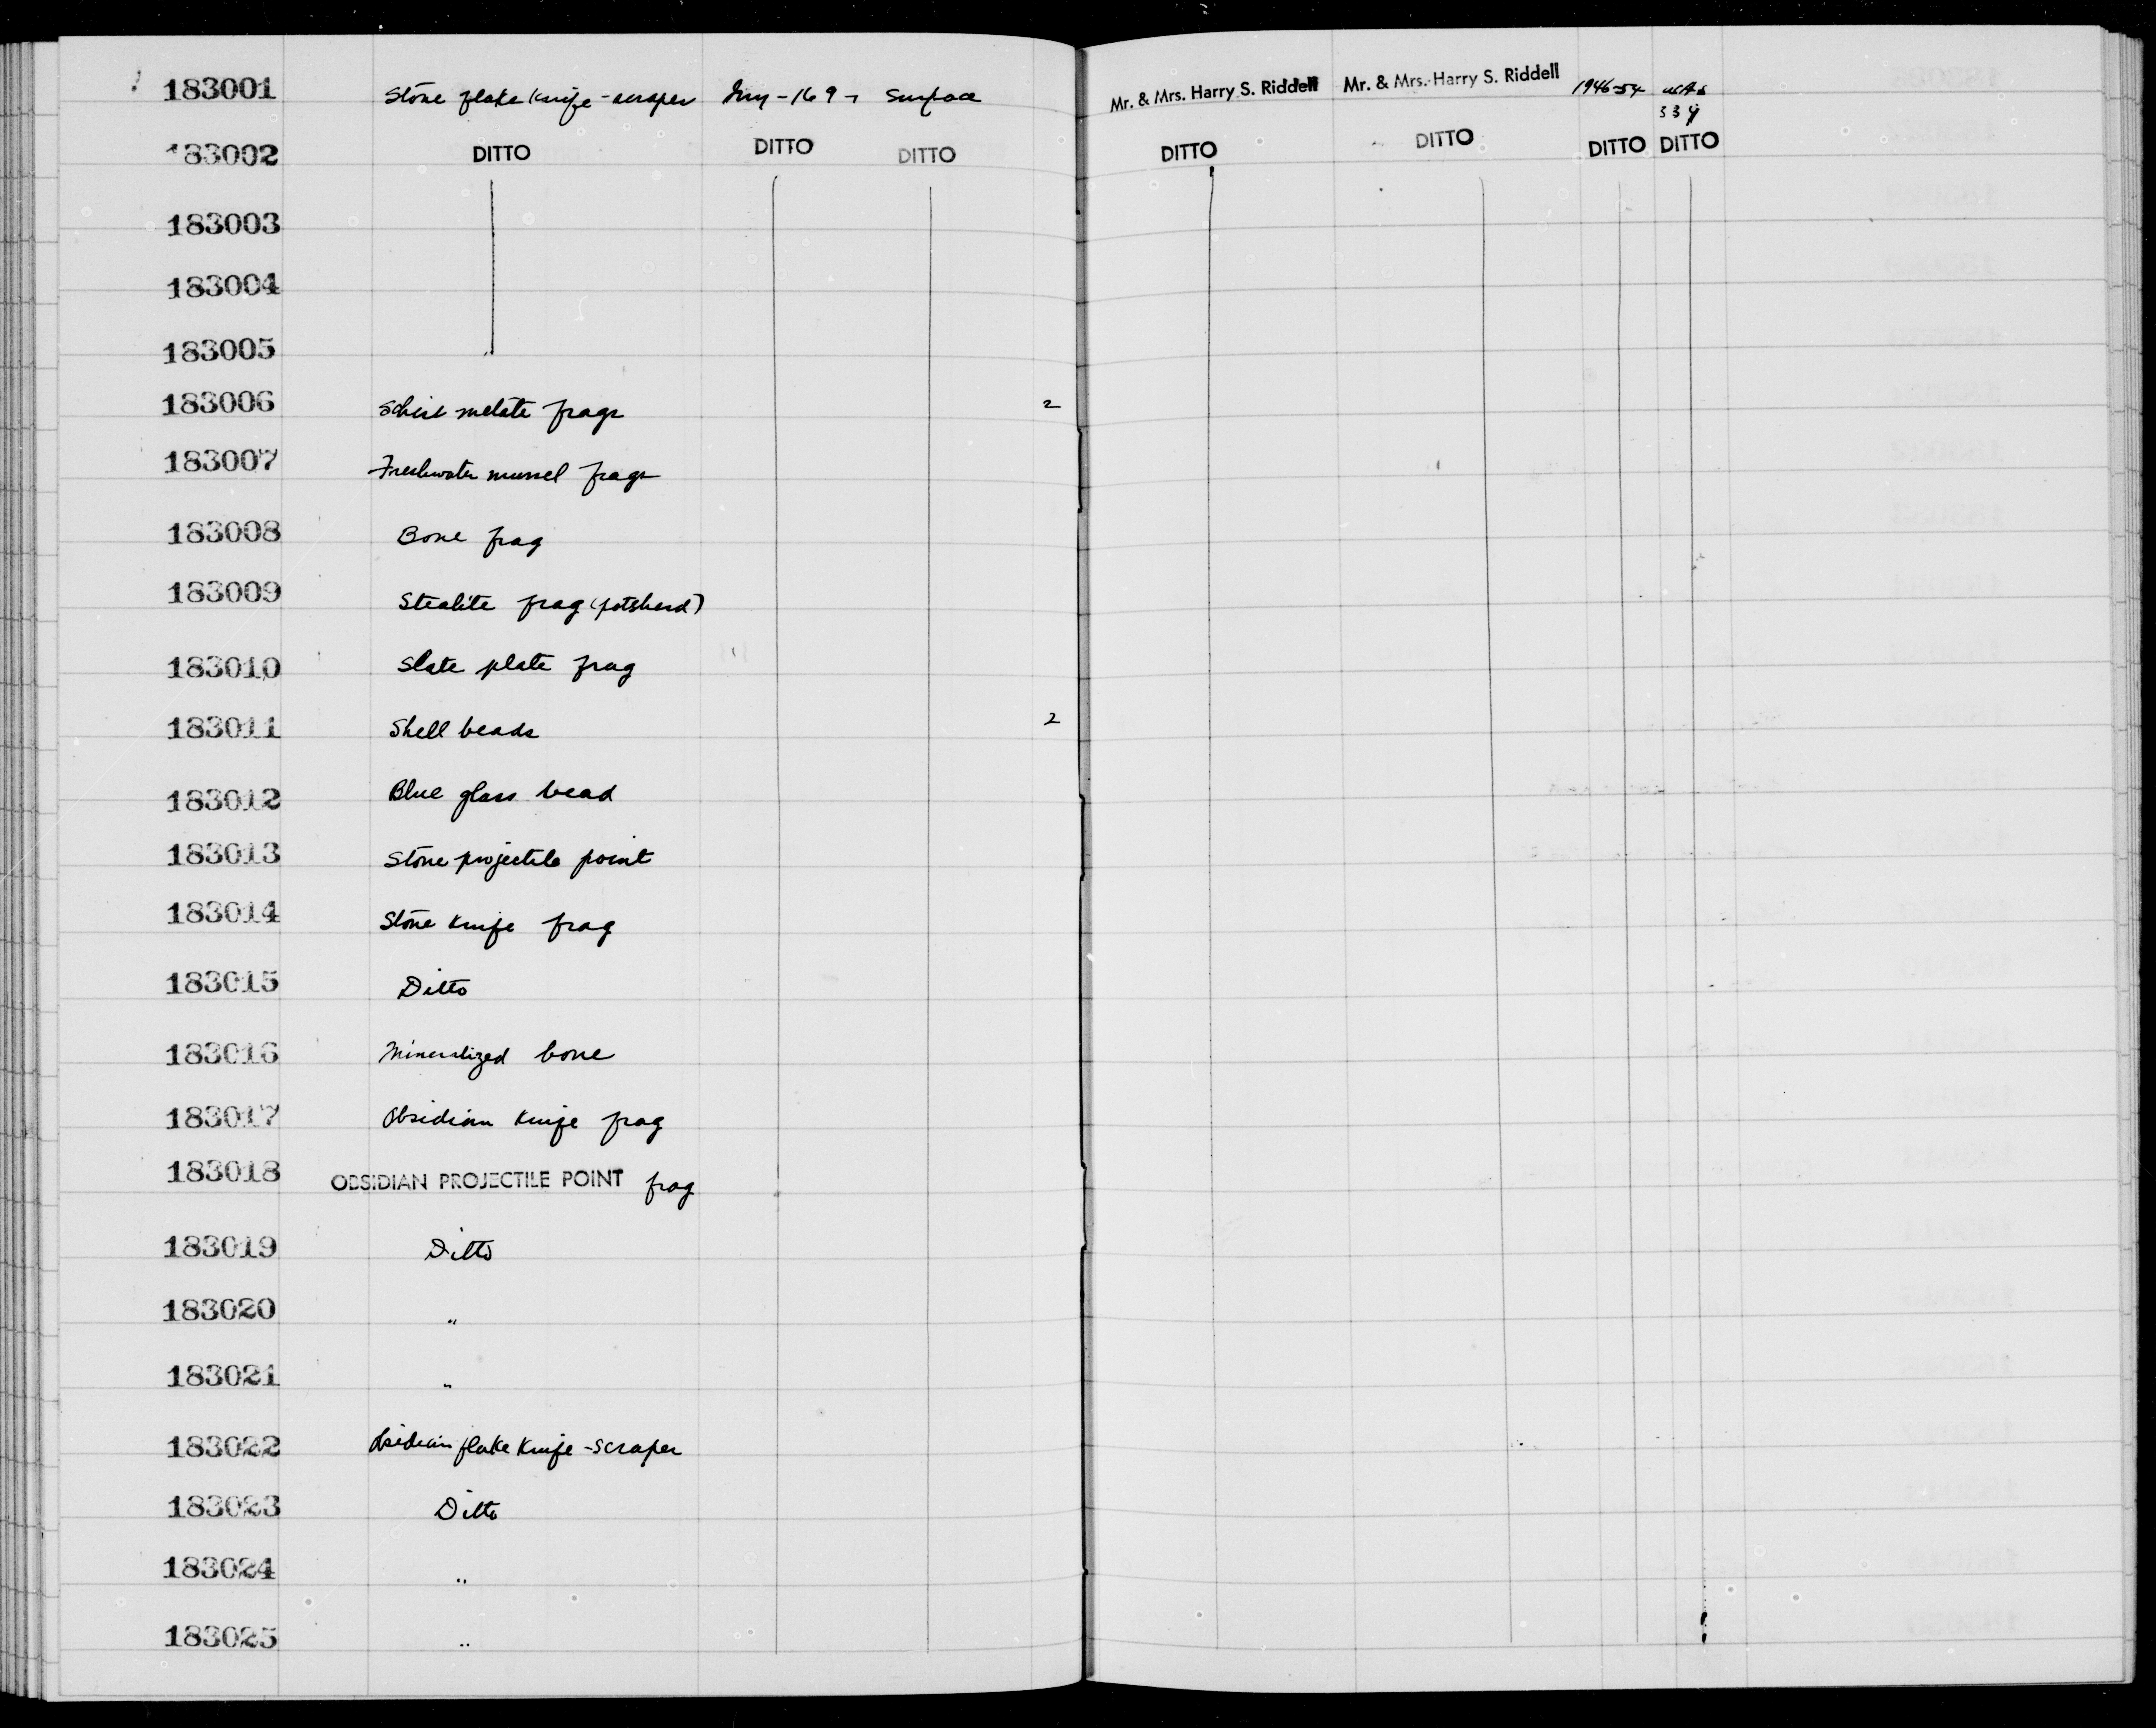 183001 Stone flake knife-scraper Iny-169 Surface Mr. & Mrs. Harry S. Riddell Mr. & Mrs. Harry S. Riddell 1946-54
183002 DITTO DITTO DITTO DITTO DITTO DITTO DITTO
183003
183004
183005
183006 Schist metate frags 2
183007 Freshwater mussel frags
183008 Bone frag
183009 Stealite frag (potsherd)
183010 Slate plate frag
183011 Shell beads 2
183012 Blue glass bead
183013 Stone projectile point
183014 Stone knife frag
183015 Ditto
183016 Mineralized bone
183017 Obsidian knife frag
183018 OBSIDIAN PROJECTILE POINT frag
183019 Ditto
183020 "
183021 "
183022 Obsidian flake knife-scraper
183023 Ditto
183024 "
183025 "